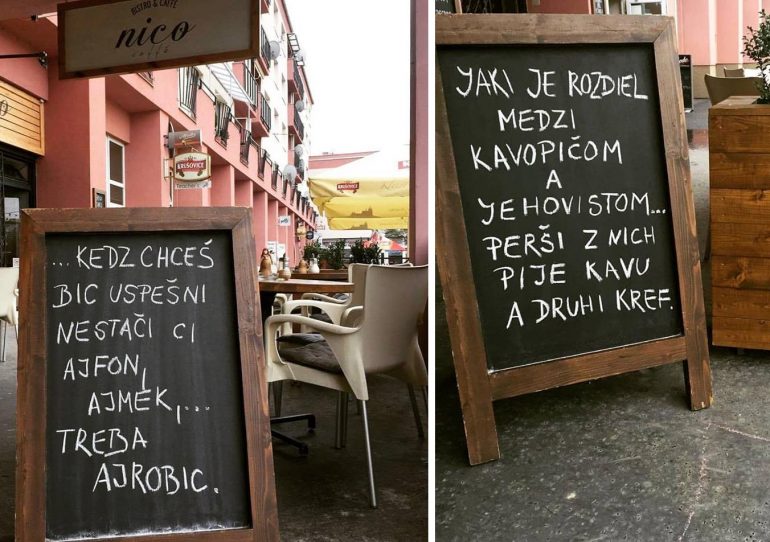 BISTRO & CAFFÉ
nico
caffé
KRUŠOVICE
KRUŠOVICE
...KEDZ CHCEŠ
BIC USPEŠNI
NESTAČI CI
AJFON,
AJMEK,...
TREBA
AJROBIC.
YAKI JE ROZDIEL
MEDZI
KAVOPIČOM
A
YEHOVISTOM...
PERŠI Z NICH
PIJE KAVU
A DRUHI KREF.